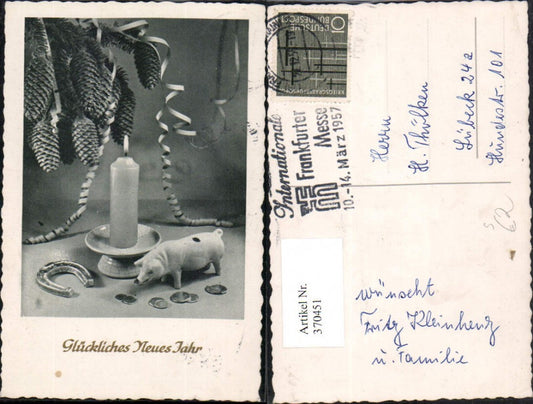 Glückliches Neues Jahr
DEUTSCHE
BUNDESPOST
10
Internationale
Frankfurter
Messe
10.-14. März 1957
Herrn
H. Thülken
Lübeck 24a
Hundestr. 101
62
Artikel Nr.
370451
wünscht
Fritz Kleinhenz
u. Familie